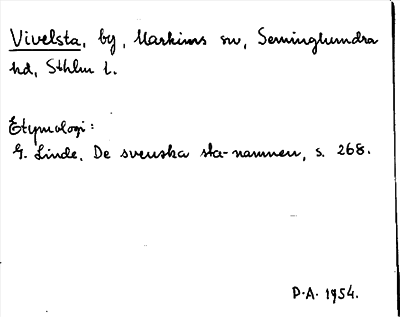 Vivelsta, by, Markims sn, Seminghundra
hd, Sthlm l.
Etymologi:
G. Linde, De svenska sta-namnen, s. 268.
D.A. 1954.